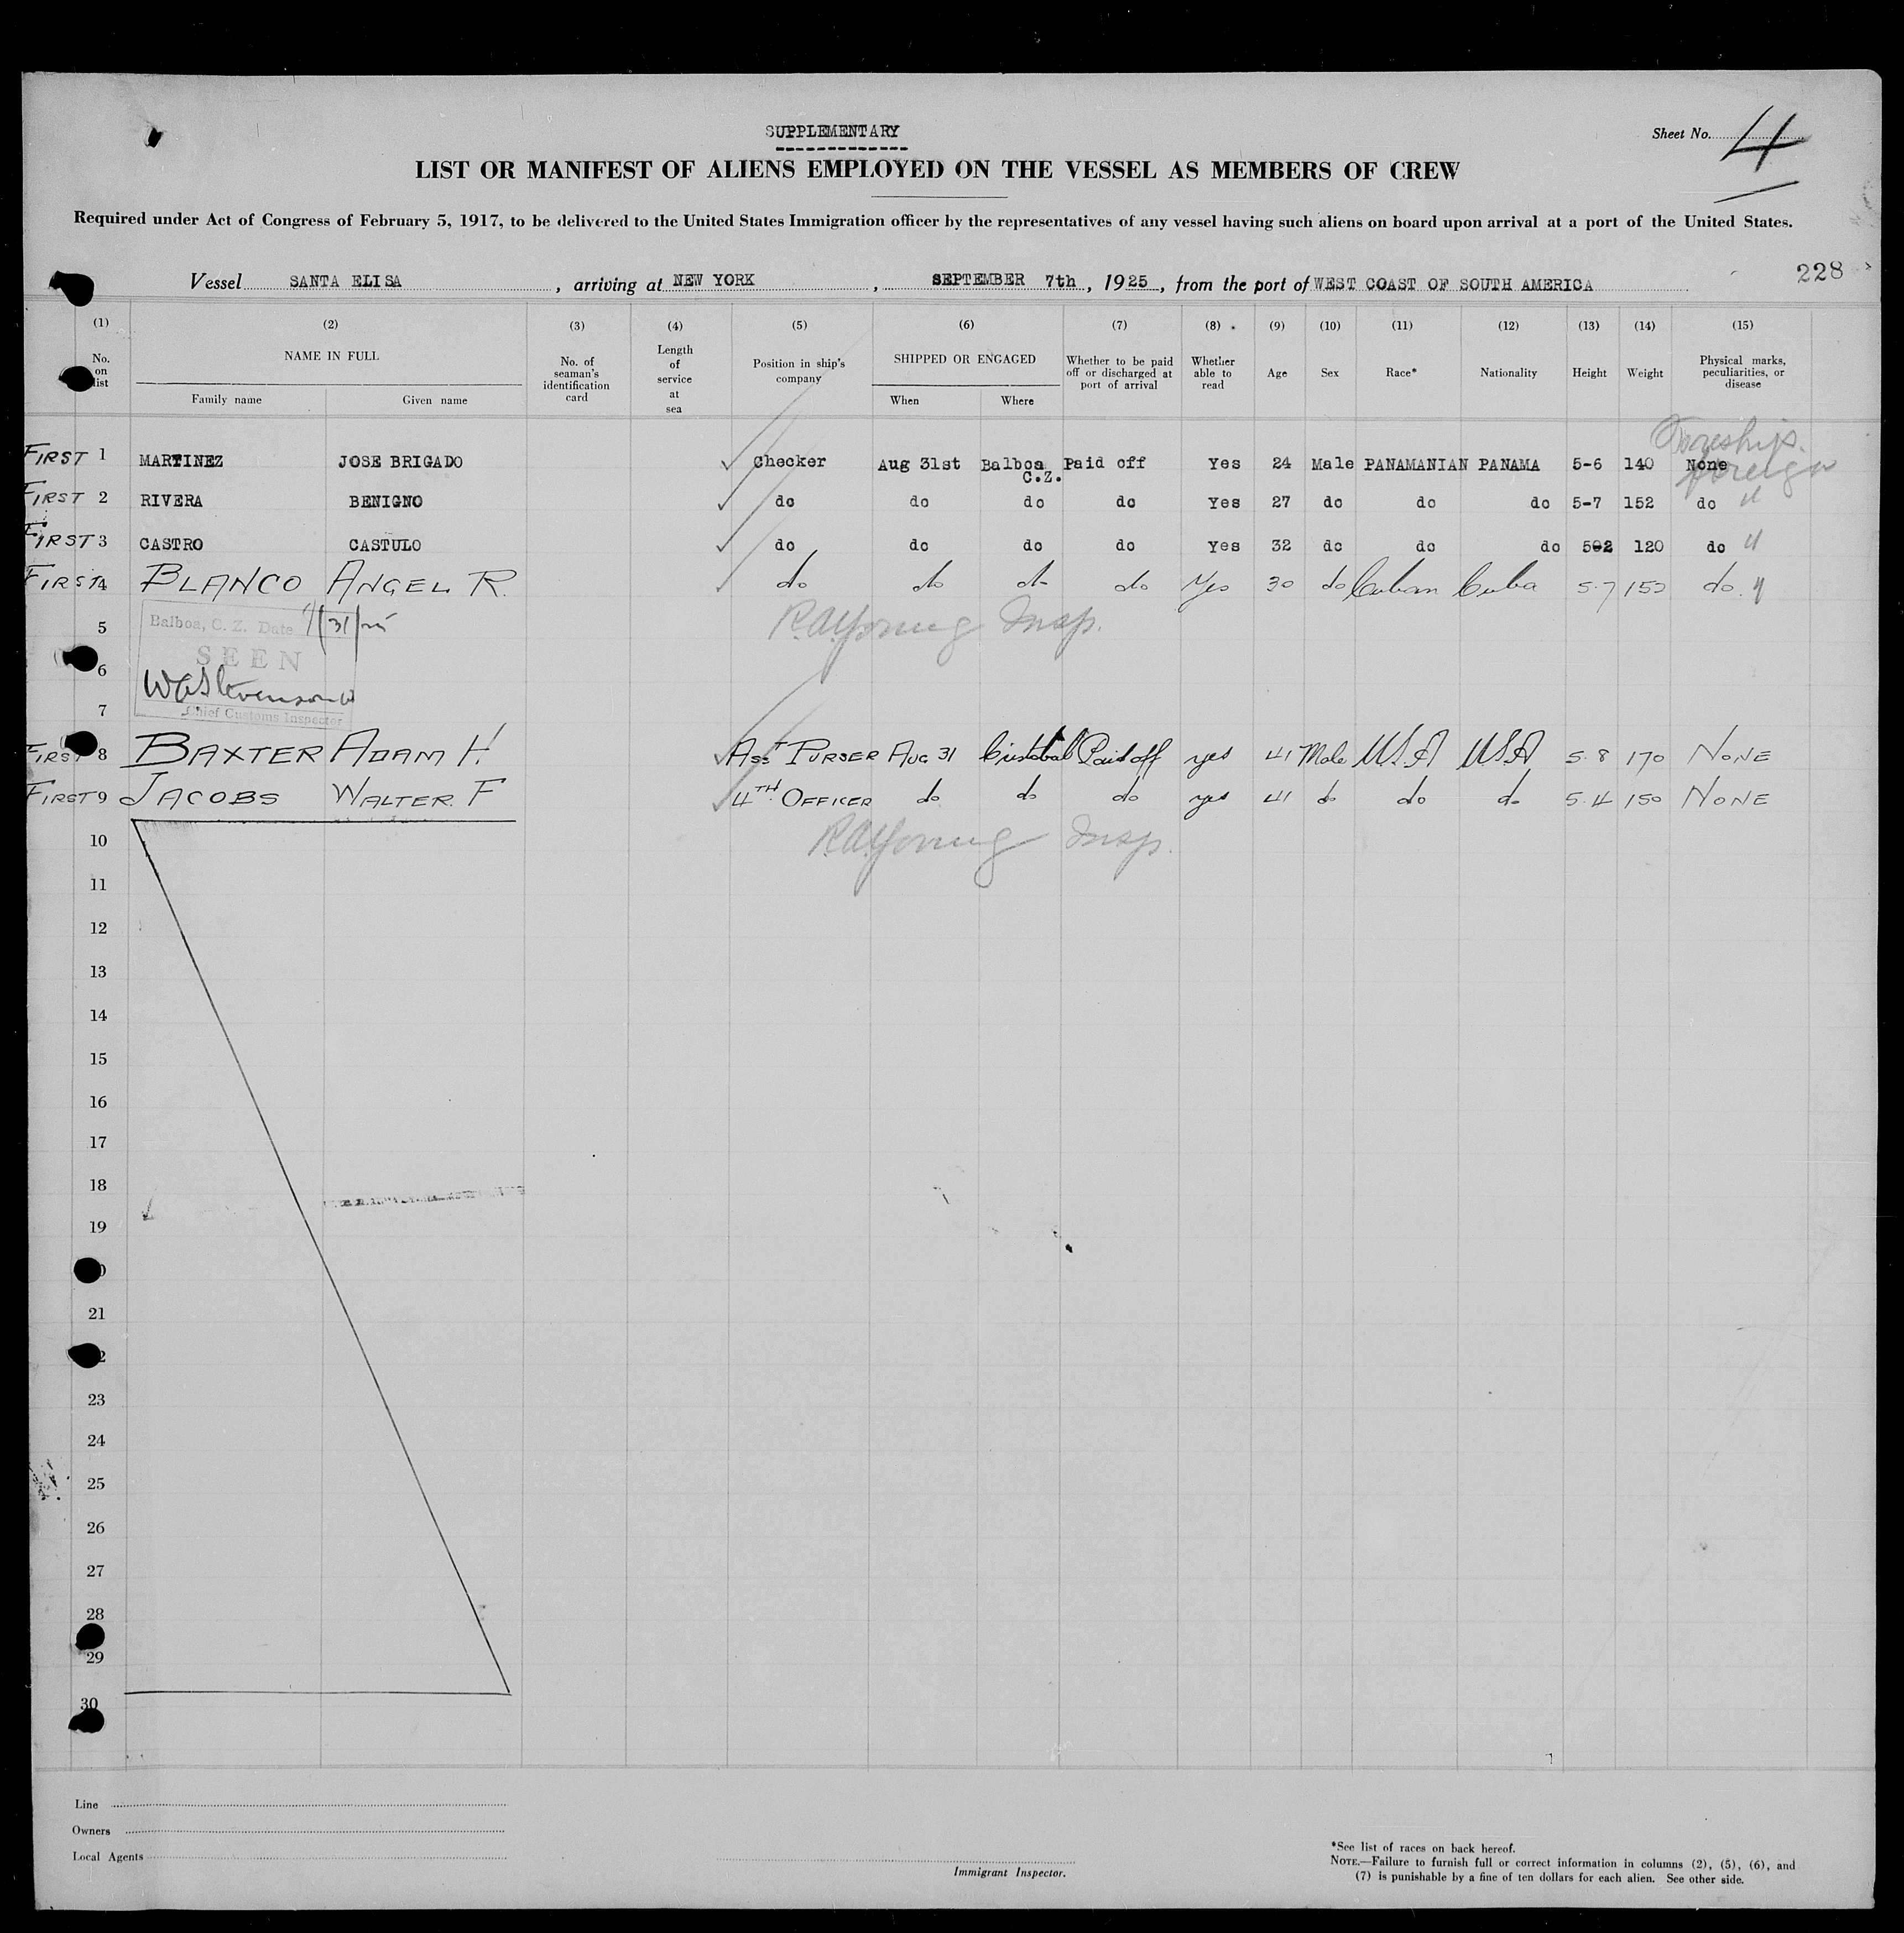 SUPPLEMENTARY
Sheet No. 4
LIST OR MANIFEST OF ALIENS EMPLOYED ON THE VESSEL AS MEMBERS OF CREW
Required under Act of Congress of February 5, 1917, to be delivered to the United States Immigration officer by the representatives of any vessel having such aliens on board upon arrival at a port of the United States.
Vessel SANTA ELISA, arriving at NEW YORK, SEPTEMBER 7th, 1925, from the port of WEST COAST OF SOUTH AMERICA
228
(1) (2) (3) (4) (5) (6) (7) (8) (9) (10) (11) (12) (13) (14) (15)
No. on list NAME IN FULL No. of seaman's identification card Length of service at sea Position in ship's company SHIPPED OR ENGAGED Whether to be paid off or discharged at port of arrival Whether able to read Age Sex Race* Nationality Height Weight Physical marks, peculiarities, or disease
Family name Given name When Where
FIRST 1 MARTINEZ JOSE BRIGADO Checker Aug 31st Balboa C.Z. Paid off Yes 24 Male PANAMANIAN PANAMA 5-6 140 None foreign
FIRST 2 RIVERA BENIGNO do do do do Yes 27 do do do 5-7 152 do "
FIRST 3 CASTRO CASTULO do do do do Yes 32 do do do 502 120 do "
FIRST 4 BLANCO ANGEL R. do do do do Yes 30 do Cuban Cuba 5-7 152 do "
5
Balboa, C. Z. Date /31/25
R.A. Young Insp.
6
SEEN
7
Chief Customs Inspector
FIRST 8 BAXTER ADAM H. Asst PURSER AUG 31 Cristobal Paid off yes 41 Male U.S.A USA 5.8 170 NONE
FIRST 9 JACOBS WALTER F 4TH OFFICER do do do yes 41 do do do 5.4 150 NONE
R.A. Young Insp.
10
11
12
13
14
15
16
17
18
19
21
23
24
25
26
27
28
29
30
Line
Owners
Local Agents
Immigrant Inspector.
*See list of races on back hereof.
NOTE.—Failure to furnish full or correct information in columns (2), (5), (6), and
(7) is punishable by a fine of ten dollars for each alien. See other side.